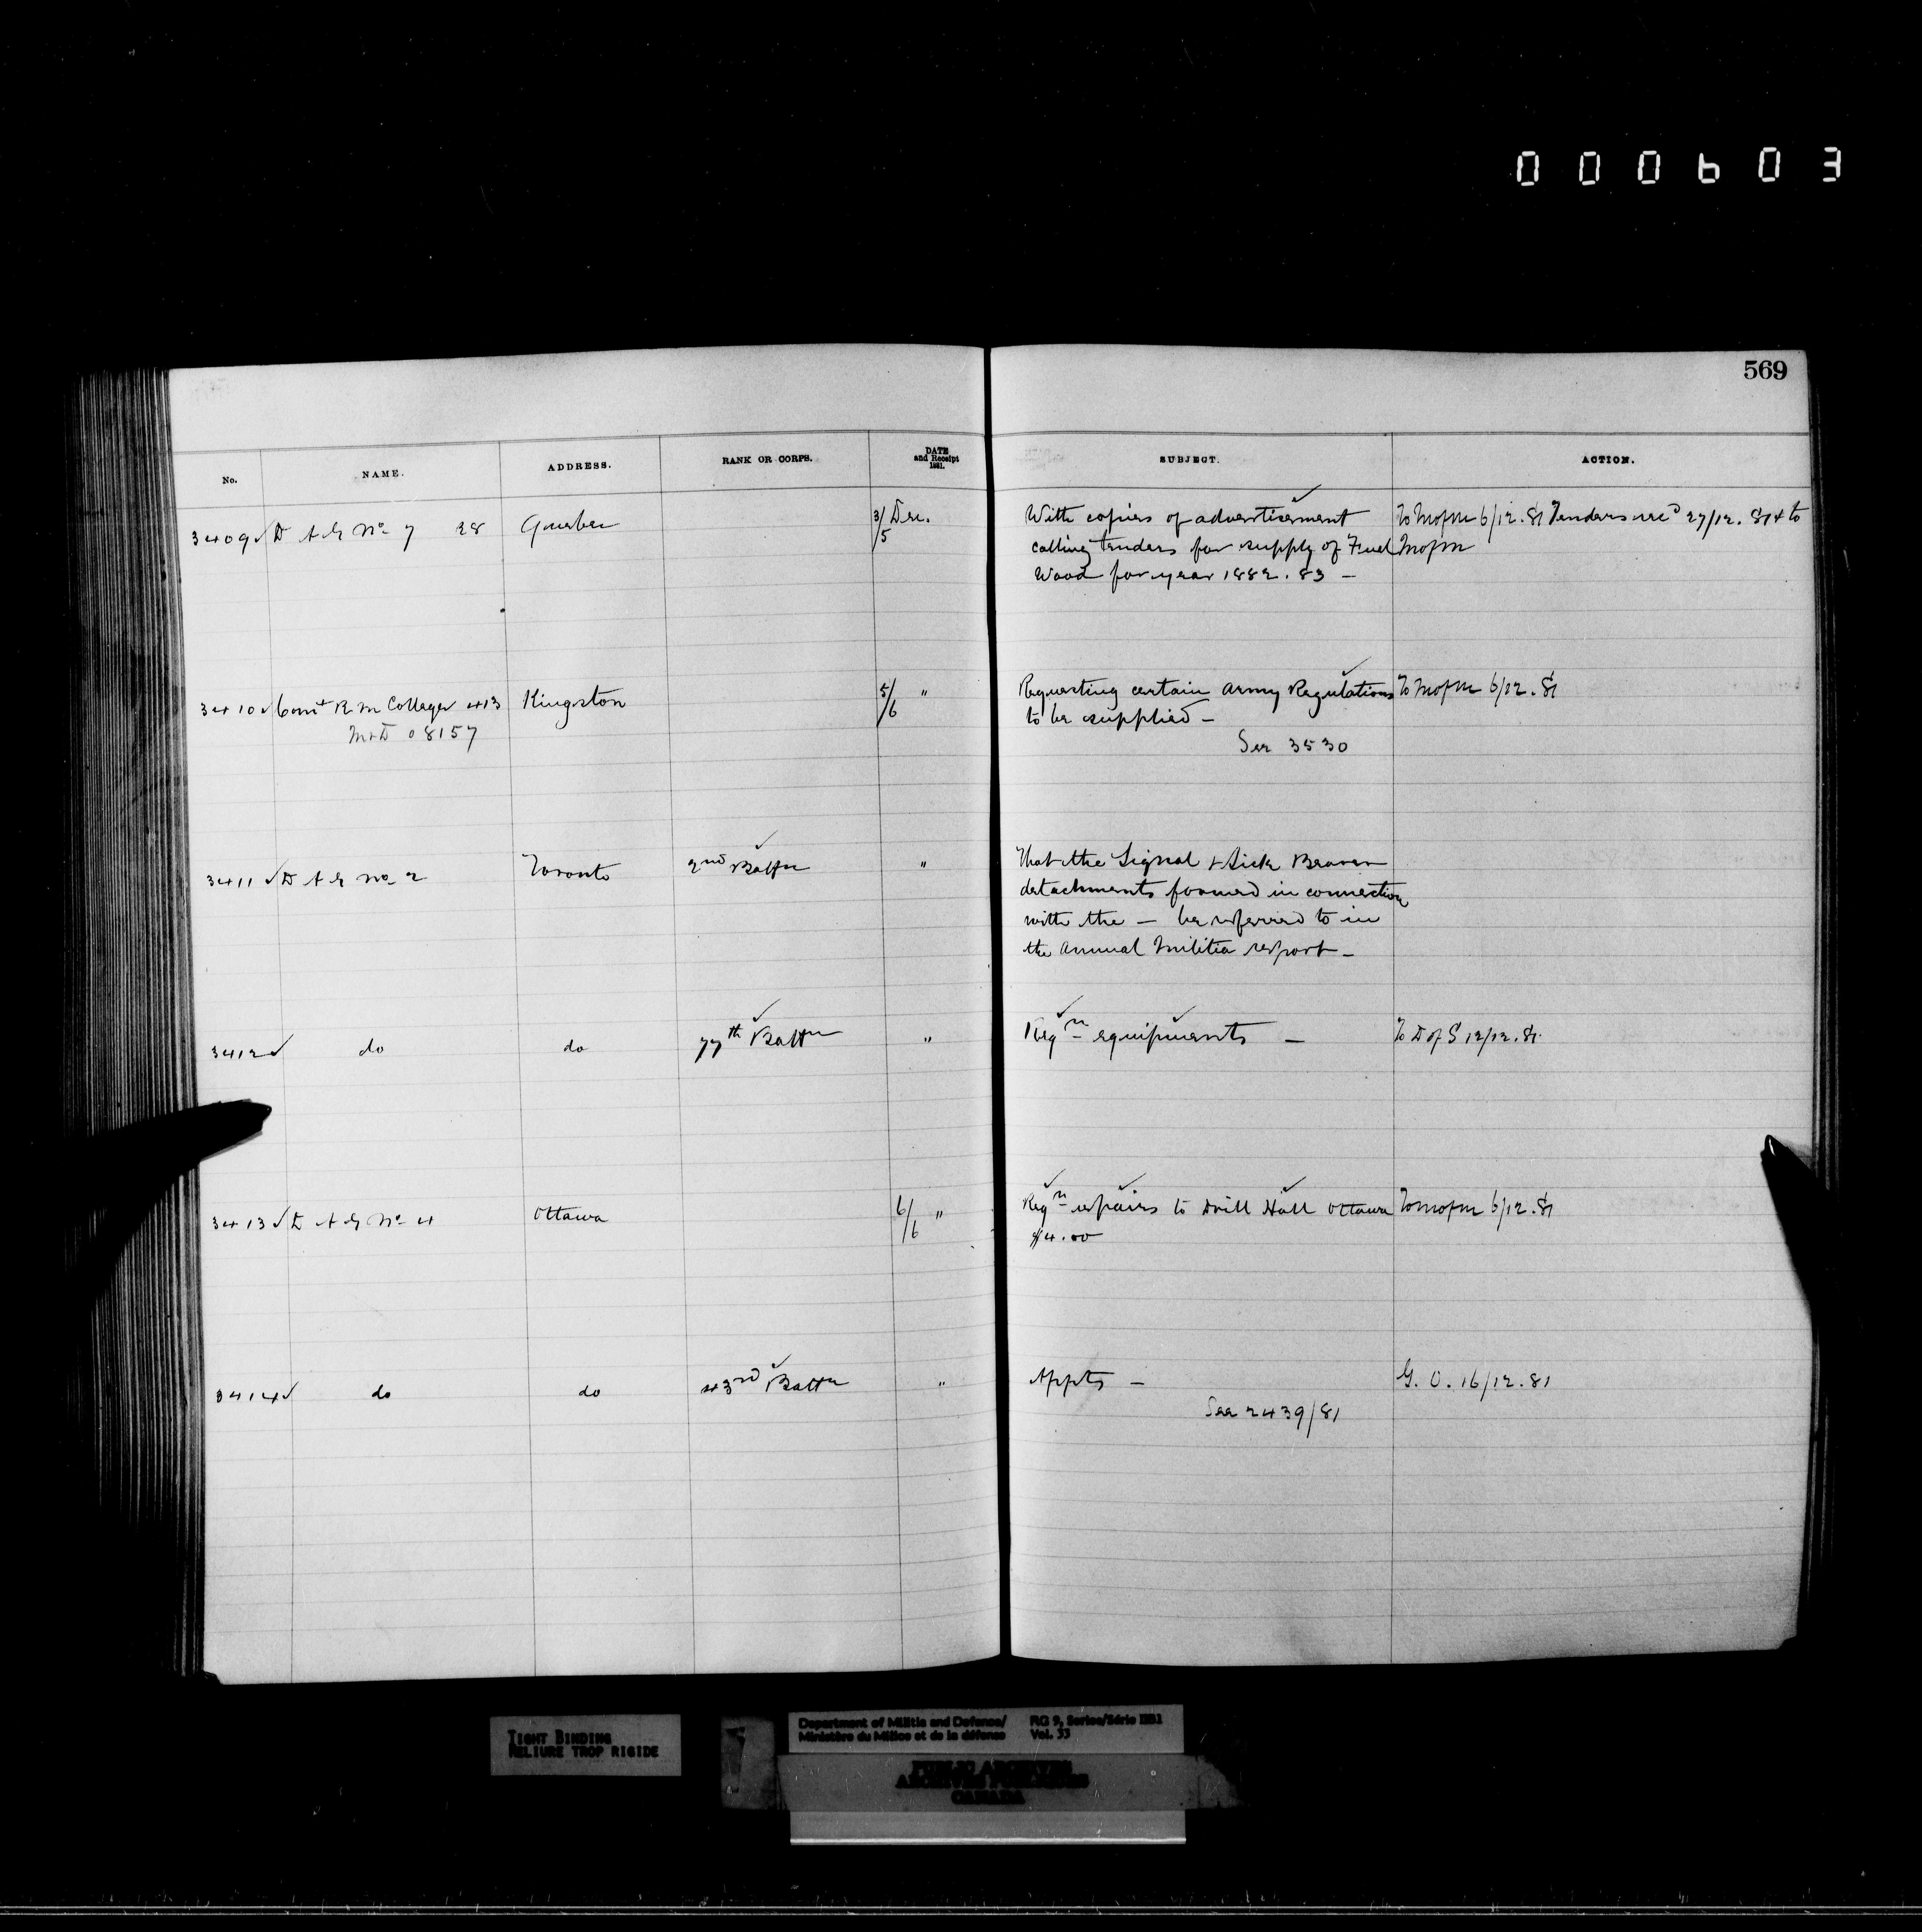 000603
569
No. NAME. ADDRESS. RANK OR CORPS. DATE and Receipt 1881. SUBJECT. ACTION.
3409 ✓ D A G No 7 28 Quebec 3/5 Dec. With copies of advertisement To M of M 6/12.81 Tenders recd 27/12.81 & to
calling tenders for supply of Fuel M of M
Wood for year 1882.83 —
3410 ✓ Comt R M College 413 Kingston 5/6 " Requesting certain Army Regulations To M of M 6/12.81
M&D 08157 to be supplied —
See 3530
3411 ✓ D A G No 2 Toronto 2nd Battn " That the Signal & Sick Bearer
detachments formed in connection
with the — be referred to in
the Annual Militia report —
3412 ✓ do do 77th Battn " Reqn equipments — To D of S 12/12.81
3413 ✓ D A G No 4 Ottawa 6/6 " Reqn repairs to Drill Hall Ottawa To M of M 6/12.81
$4.00
3414 ✓ do do 43rd Battn " Appts — G. O. 16/12.81
See 2439/81
TIGHT BINDING
RELIURE TROP RIGIDE
Department of Militia and Defence/ RG 9, Series/Série IIB1
Ministère du Milice et de la défence Vol. 33
PUBLIC ARCHIVES
ARCHIVES PUBLIQUES
CANADA